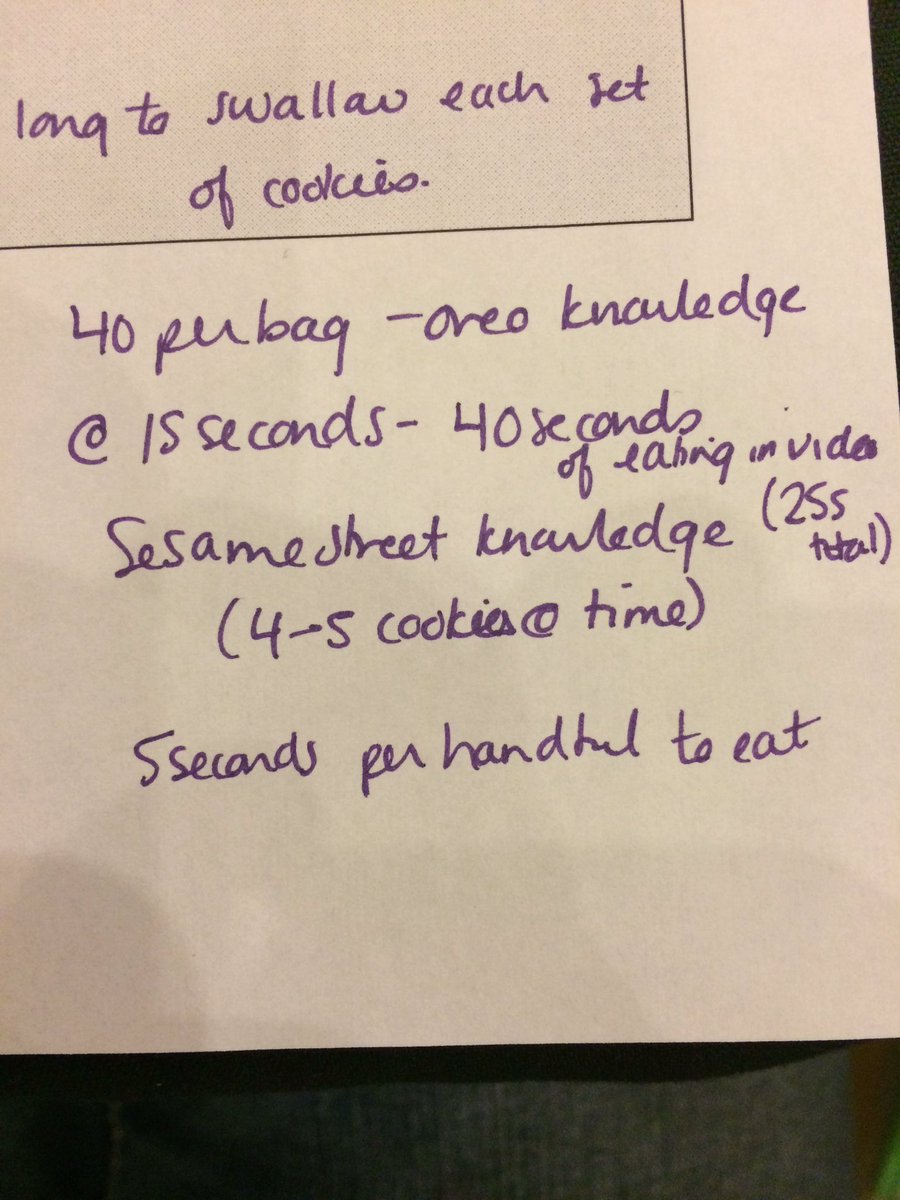 long to swallow each set
of cookies.
40 per bag - oreo knowledge
@ 15 seconds - 40 seconds
of eating in video
(25s
total)
Sesame street knowledge
(4-5 cookies @ time)
5 seconds per handful to eat